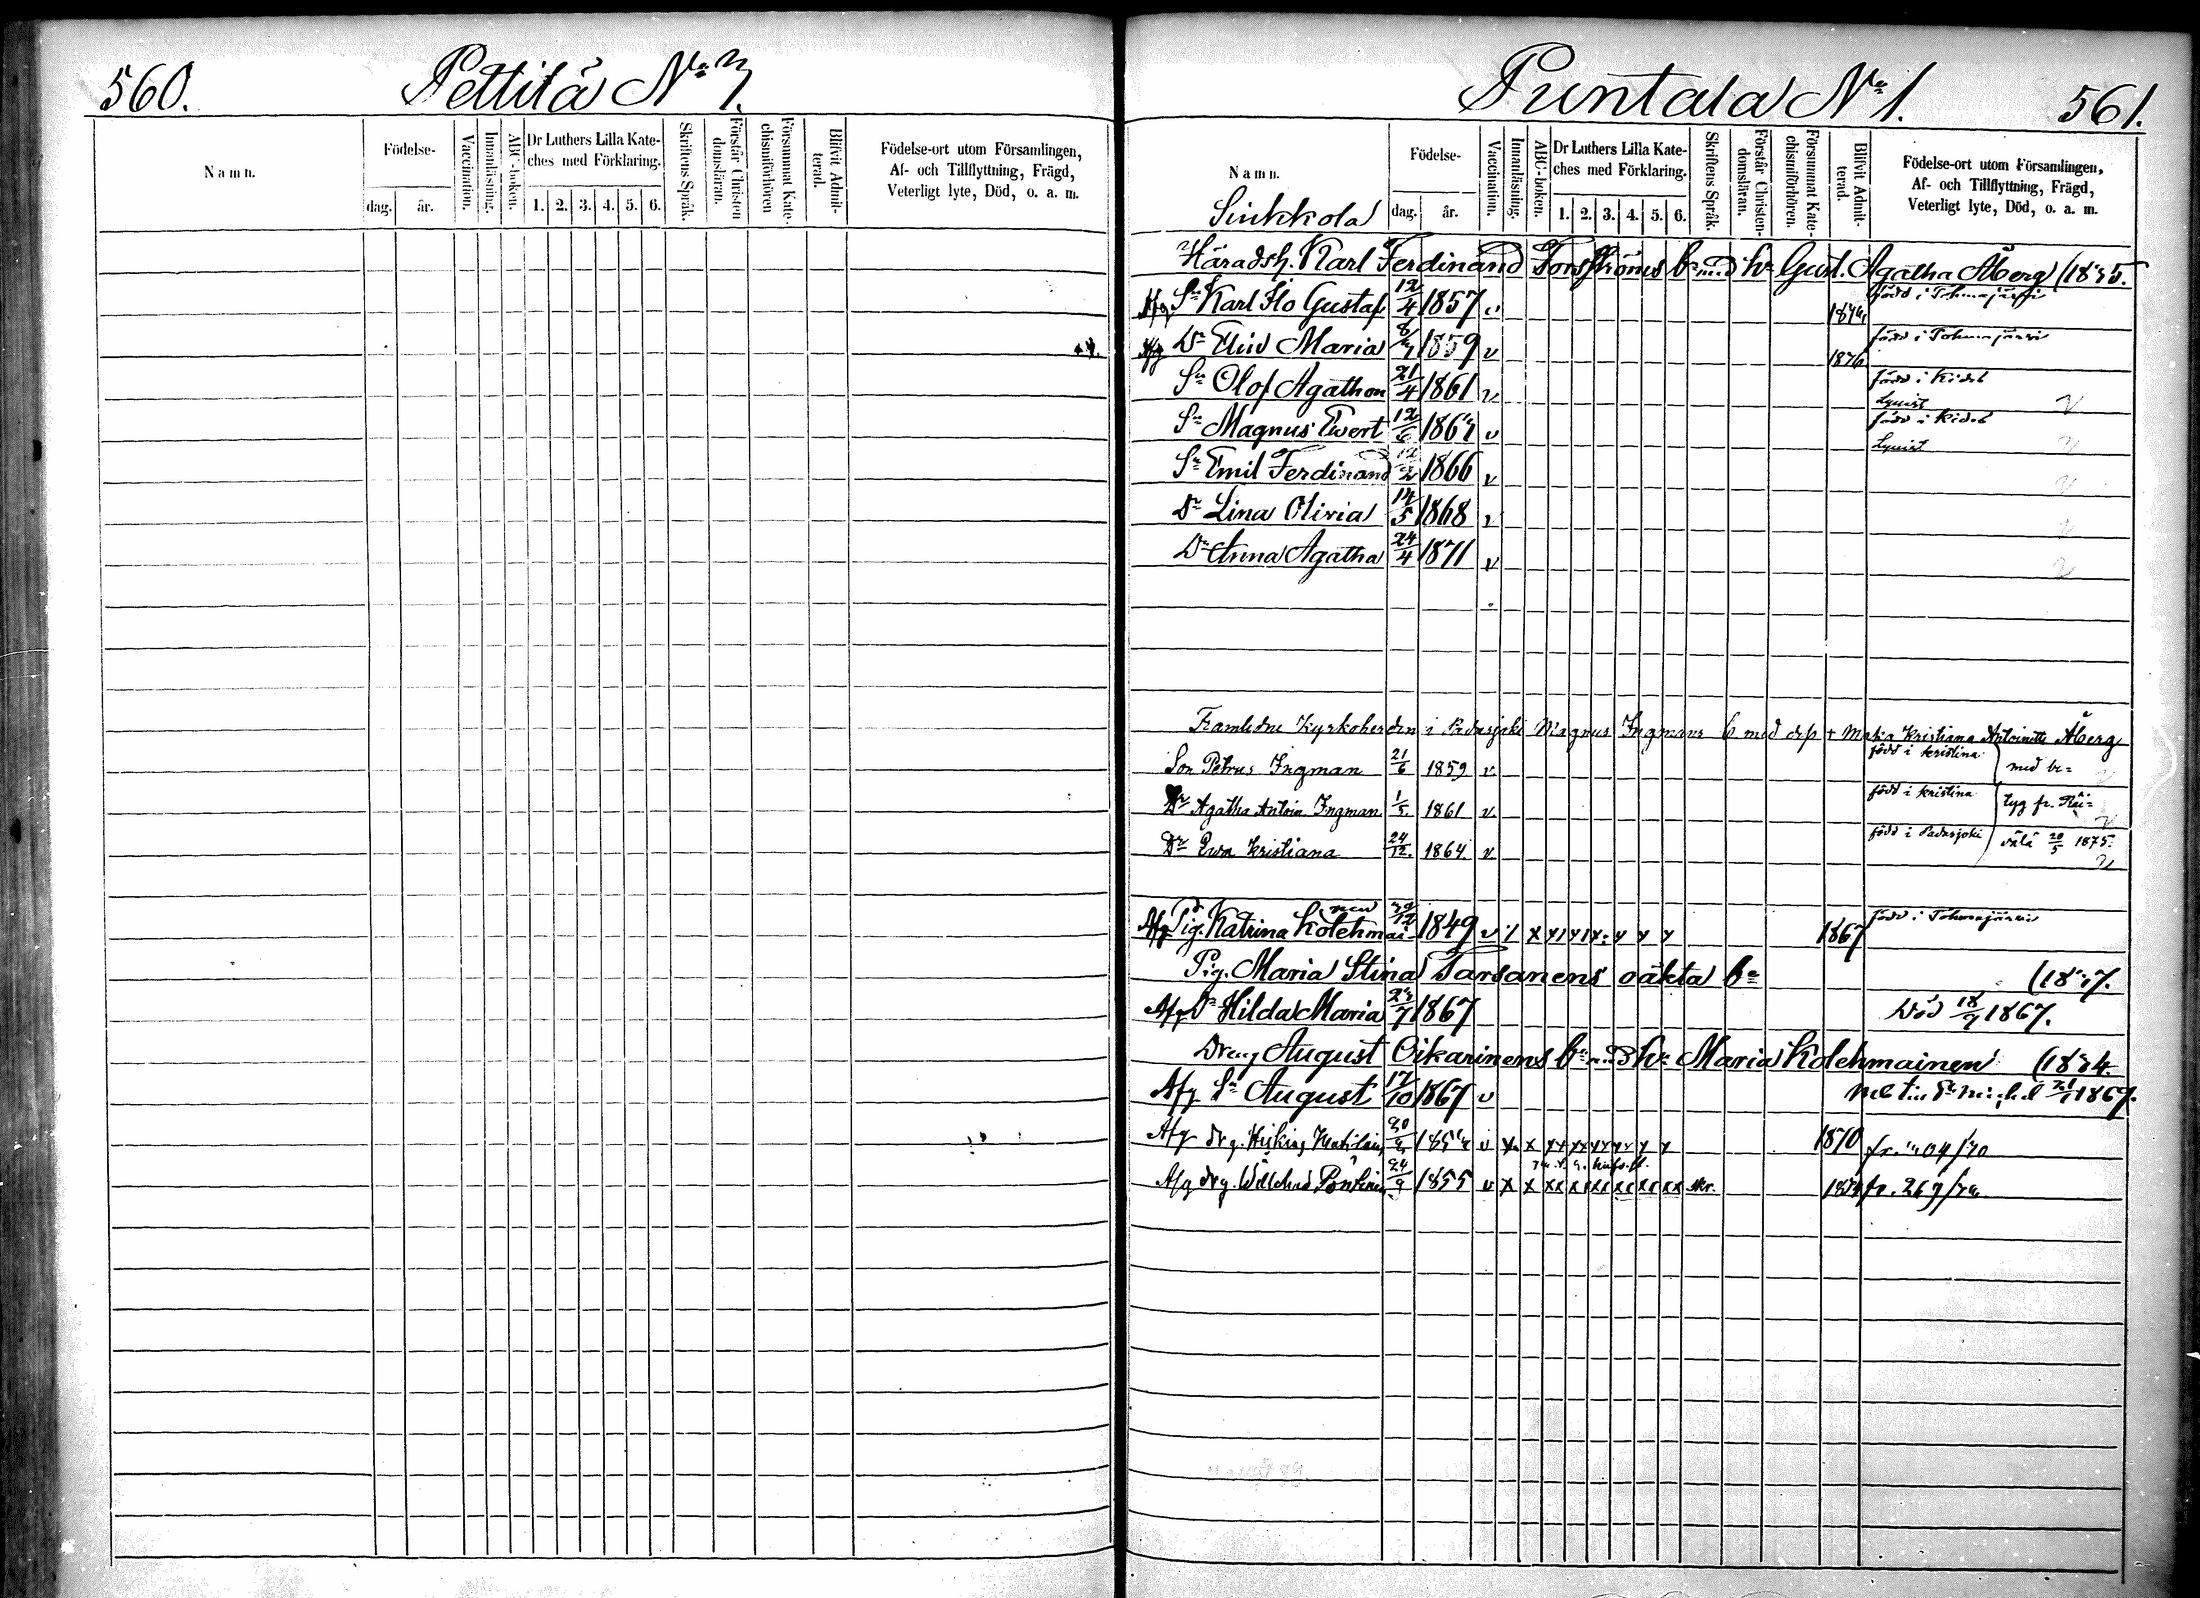 560. Pettilä No 7.
Namn.
Födelse-
dag. år.
Vaccination.
Innanläsning.
ABC-boken.
Dr Luthers Lilla Kate-
ches med Förklaring.
1. 2. 3. 4. 5. 6.
Skriftens Språk.
Förstår Christen
domsläran.
Försummat Kate-
chismiförhören
Blifvit Admit-
terad.
Födelse-ort utom Församlingen,
Af- och Tillflyttning, Frägd,
Veterligt lyte, Död, o. a. m.
Puntala No 1. 561.
Namn.
Sinkkola
Födelse-
dag. år.
Vaccination.
Innanläsning.
ABC-boken.
Dr Luthers Lilla Kate-
ches med Förklaring.
1. 2. 3. 4. 5. 6.
Skriftens Språk.
Förstår Christen-
domsläran.
Försummat Kate-
chismiförhören.
Blifvit Admit-
terad.
Födelse-ort utom Församlingen,
Af- och Tillflyttning, Frägd,
Veterligt lyte, Död, o. a. m.
Häradsh. Karl Ferdinand Forsströms bn med h. Gust. Agatha Åberg
Afg Sn Karl Ilo Gustaf 12/4 1857 v född i Tohmajärvi
Afg Dr Maria 1859 v 1876 född i Tohmajärvi
Sn Olof Agathon 21/4 1861 v född i Kides
Lyceist
Sn Magnus Evert 12/6 186 v född i Kides
Lyceist
Sn Emil Ferdinand 12/2 1866 v
Dr Lina Olivia 14/5 1868 v
Dr Anna Agatha 24/4 1871 v
Framlidne Kyrkoherden i Padasjoki Magnus Ingmans b med dess + Maria Kristiana Antoinette Åberg
Son Petrus Ingman 21/6 1859 v född i Kristina med be=
Dr Agatha Antoin. Ingman 1/5 1861 v född i Kristina tyg fr. Räi=
Dr Ewa Kristiana 24/12 1864 v född i Padasjoki sälä 20/5 1875
Afg Pig. Katrina Kolehmainen 1849 v 1867 född i Tohmajärvi
Pig. Maria Stina Tarsanens oäkta bn
Afg Dr Hilda Maria 1867 Död 18/9 1867.
Dreng August Oikarinens bn med h. Maria Kolehmainen
Afg Sn August 17/10 1867 v
Afg drg. 1870
Afg drg. Pöntinen 24/9 1855 v skr. fr. 267